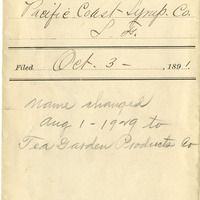 Pacific Coast Syrup. Co.
S. F.
Filed Oct. 3 - , 1891.
Name changed
Aug 1 - 1929 to
Tea Garden Products Co